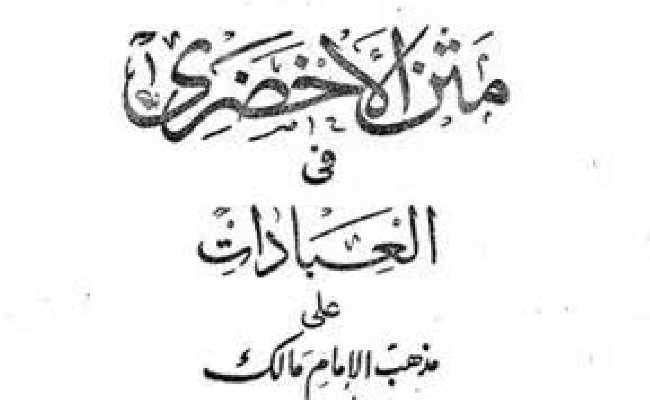 متن الأخضري
في
العبادات
على
مذهب الإمام مالك